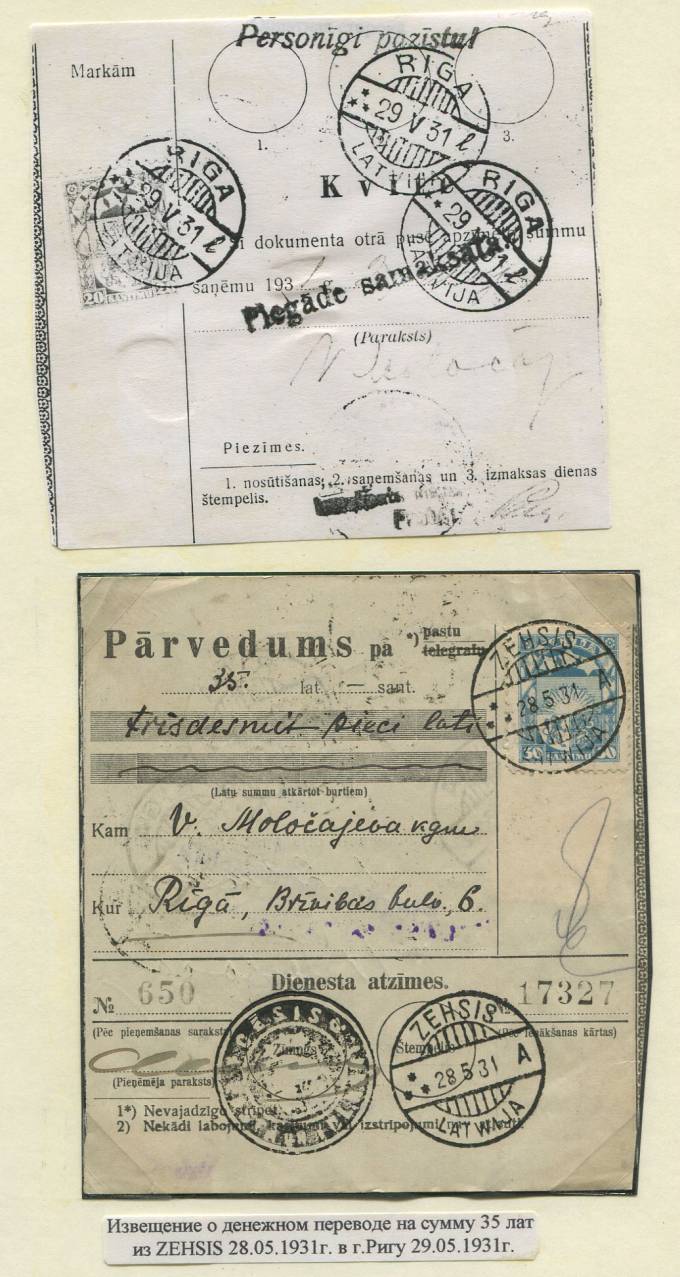 Personīgi pazīstu!
Markām
1.
3.
RIGA
29 V 31 l
LATVIJA
RIGA
29 V 31 l
LATVIJA
RIGA
29 V 31 l
LATVIJA
20
Kvīte
šī dokumenta otrā pusē apzīmēto summu
saņēmu 193
Piegāde samaksāta.
(Paraksts)
Piezīmes.
1. nosūtišanas, 2. saņemšanas un 3. izmaksas dienas
štempelis.
Pārvedums pa *) pastu
telegrafu
35. lat. — sant.
trīsdesmit pieci lati
(Latu summu atkārtot burtiem)
Kam V. Moločajeva kgm
Kur Rīgā, Brīvibas bulv., 6.
ZEHSIS
A
28 5 31
LATWIJA
50
Dienesta atzīmes.
№ 650
№ 17327
(Pēc pieņemšanas saraksta)
(Pēc ienākšanas kārtas)
Zīmogs
Štempelis
(Pieņēmēja paraksts)
ZEHSIS
A
28 5 31
LATWIJA
1*) Nevajadzīgo strīpot.
2) Nekādi labojumi, kasījumi vai izstrīpojumi nav atļauti.
Извещение о денежном переводе на сумму 35 лат
из ZEHSIS 28.05.1931г. в г.Ригу 29.05.1931г.